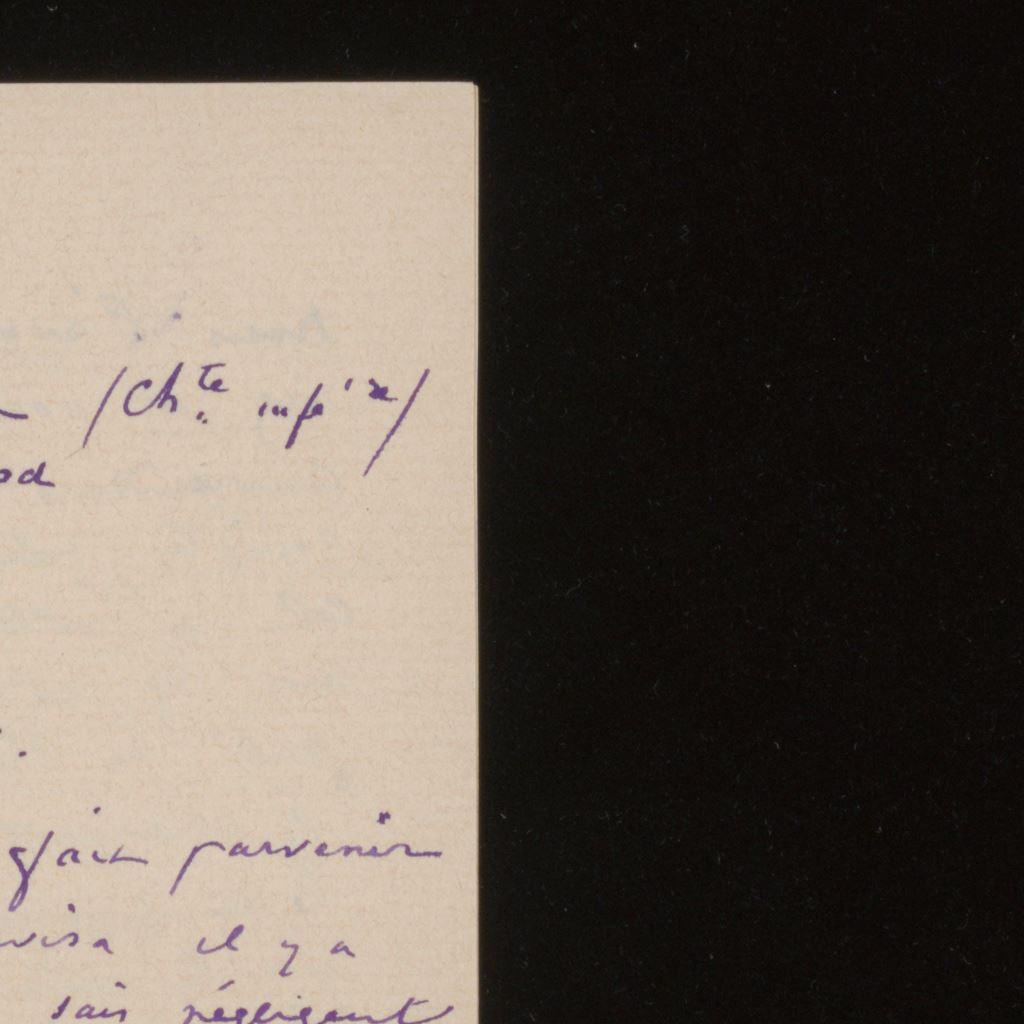 (Ch.te infe're)
od
.
fait parvenir
il y a
sais négligent